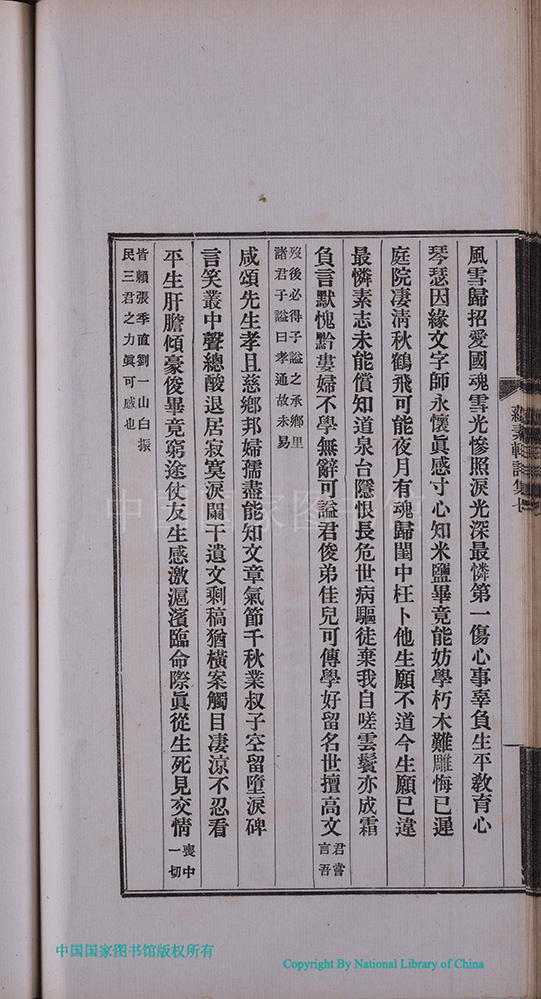 風雪歸招愛國魂雪光慘照淚光深最憐第一傷心事辜負生平教育心
琴瑟因緣文字師永懷眞感寸心知米鹽畢竟能妨學朽木難雕悔已遲
庭院淒清秋鶴飛可能夜月有魂歸閨中枉卜他生願不道今生願已違
最憐素志未能償知道泉台隱恨長危世病軀徒棄我自嗟雲鬢亦成霜
負言默愧黔婁婦不學無辭可謚君俊弟佳兒可傳學好留名世擅高文
君嘗
言吾
歿後必得子謚之承鄉里
諸君子謚曰孝通故未易
咸頌先生孝且慈鄉邦婦孺盡能知文章氣節千秋業叔子空留墮淚碑
言笑叢中聲總酸退居寂寞淚闌干遺文剩稿猶橫案觸目凄涼不忍看
平生肝膽傾豪俊畢竟窮途仗友生感激滬濱臨命際眞從生死見交情
喪中
一切
皆賴張季直劉一山白振
民三君之力眞可感也
中国国家图书馆
中国国家图书馆版权所有
Copyright By National Library of China